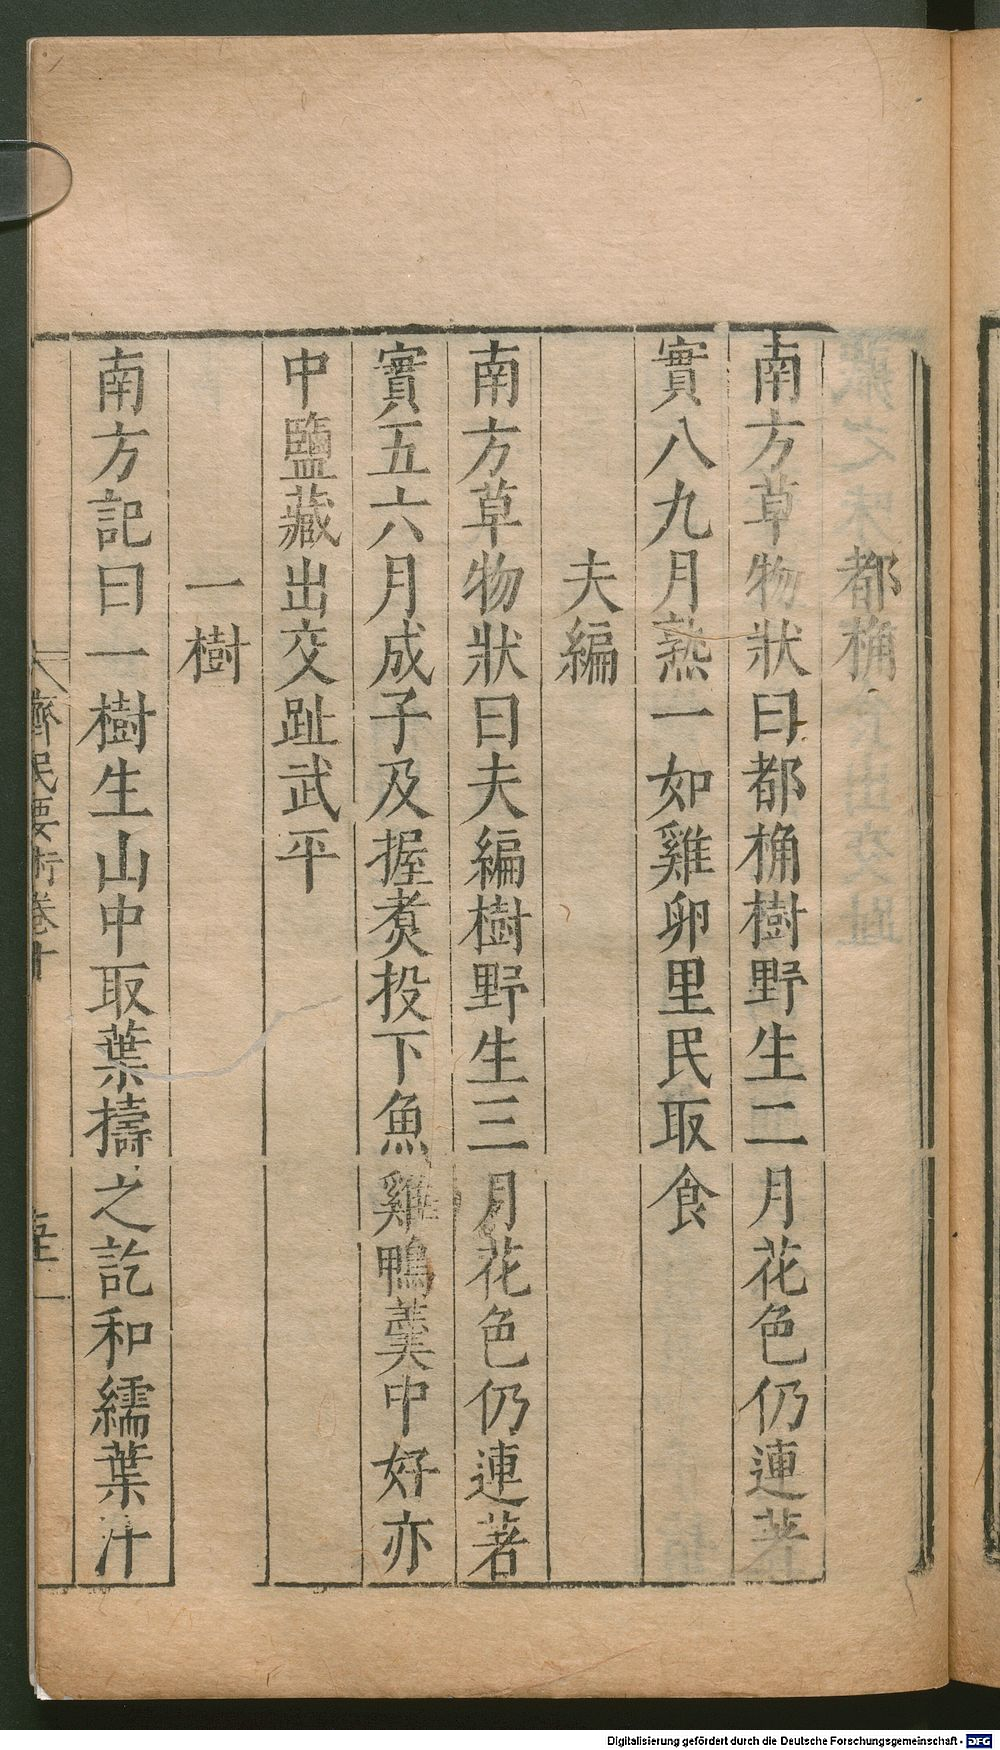 都桷
南方草物狀曰都桷樹野生二月花色仍連著
實八九月熟一如雞卵里民取食
夫編
南方草物狀曰夫編樹野生三月花色仍連著
實五六月成子及握煑投下魚雞鴨羹中好亦
中鹽藏出交趾武平
一樹
南方記曰一樹生山中取葉擣之訖和繻葉汁
齊民要術卷十
Digitalisierung gefördert durch die Deutsche Forschungsgemeinschaft - DFG